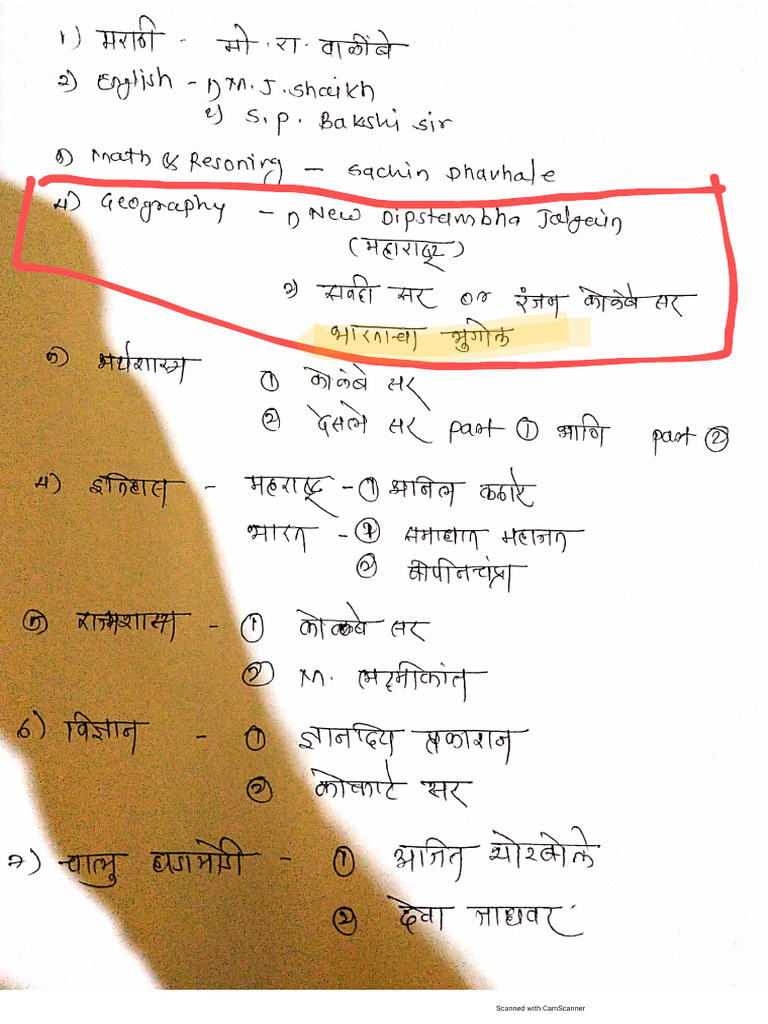 1) मराठी - मो. रा. वाळींबे
2) English - 1) M. J. Shaikh
2) S. P. Bakshi sir
3) Math & Resoning - Sachin Dhavhale
4) Geography - 1) New Dipstambha Jalgain
(महाराष्ट्र)
2) सवदी सर or रंजन कोळंबे सर
भारताचा भुगोल
3) अर्थशास्त्र ① कोळंबे सर
② देसले सर part ① आणि part ②
4) इतिहास - महाराष्ट्र - ① अनिल कठारे
भारत - ① समाधान महाजन
② बीपीनचंद्रा
5) राज्यशास्त्र - ① कोळंबे सर
② M. लक्ष्मीकांत
6) विज्ञान - ① ज्ञानदिप प्रकाशन
② कोकाटे सर
7) चालु घडामोडी - ① अजित थोरबोले
② देवा जाधवर
Scanned with CamScanner